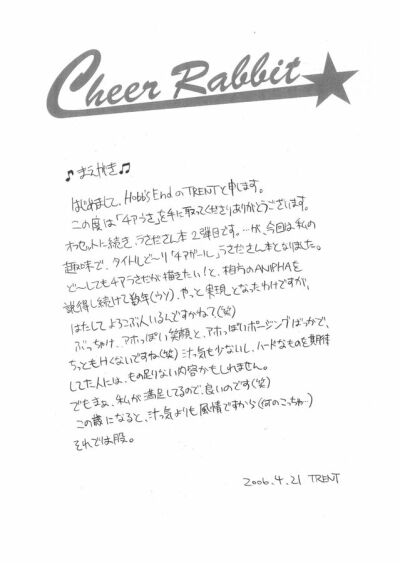 Cheer Rabbit
♪まえがき♫
はじめまして、Hobb's EndのTRENTと申します。
この度は「チアうさ」を手に取ってくださりありがとうございます。
オセットに続き、うさださん本2弾目です。…が、今回は私の
趣味で、タイトルど〜り「チアガール」うさださん本となりました。
ど〜してもチアうさだが描きたい!と、相方のANIPHAを
説得し続けて数年(ウソ)、やっと実現となったわけですが、
はたしてよろこぶ人いるんですかねて(笑)
ぶっちゃけ、アホっぽい笑顔と、アホっぽいポージングばっかで、
ちっともHくないですね(笑) 汁っ気も少ないし、ハードなものを期待
してた人には、もの足りない内容かもしれません。
でもまぁ、私が満足してるので、良いのです(笑)
この歳になると、汁っ気よりも風情ですから(何のこっちゃ…)
それでは股。
2006.4.21 TRENT